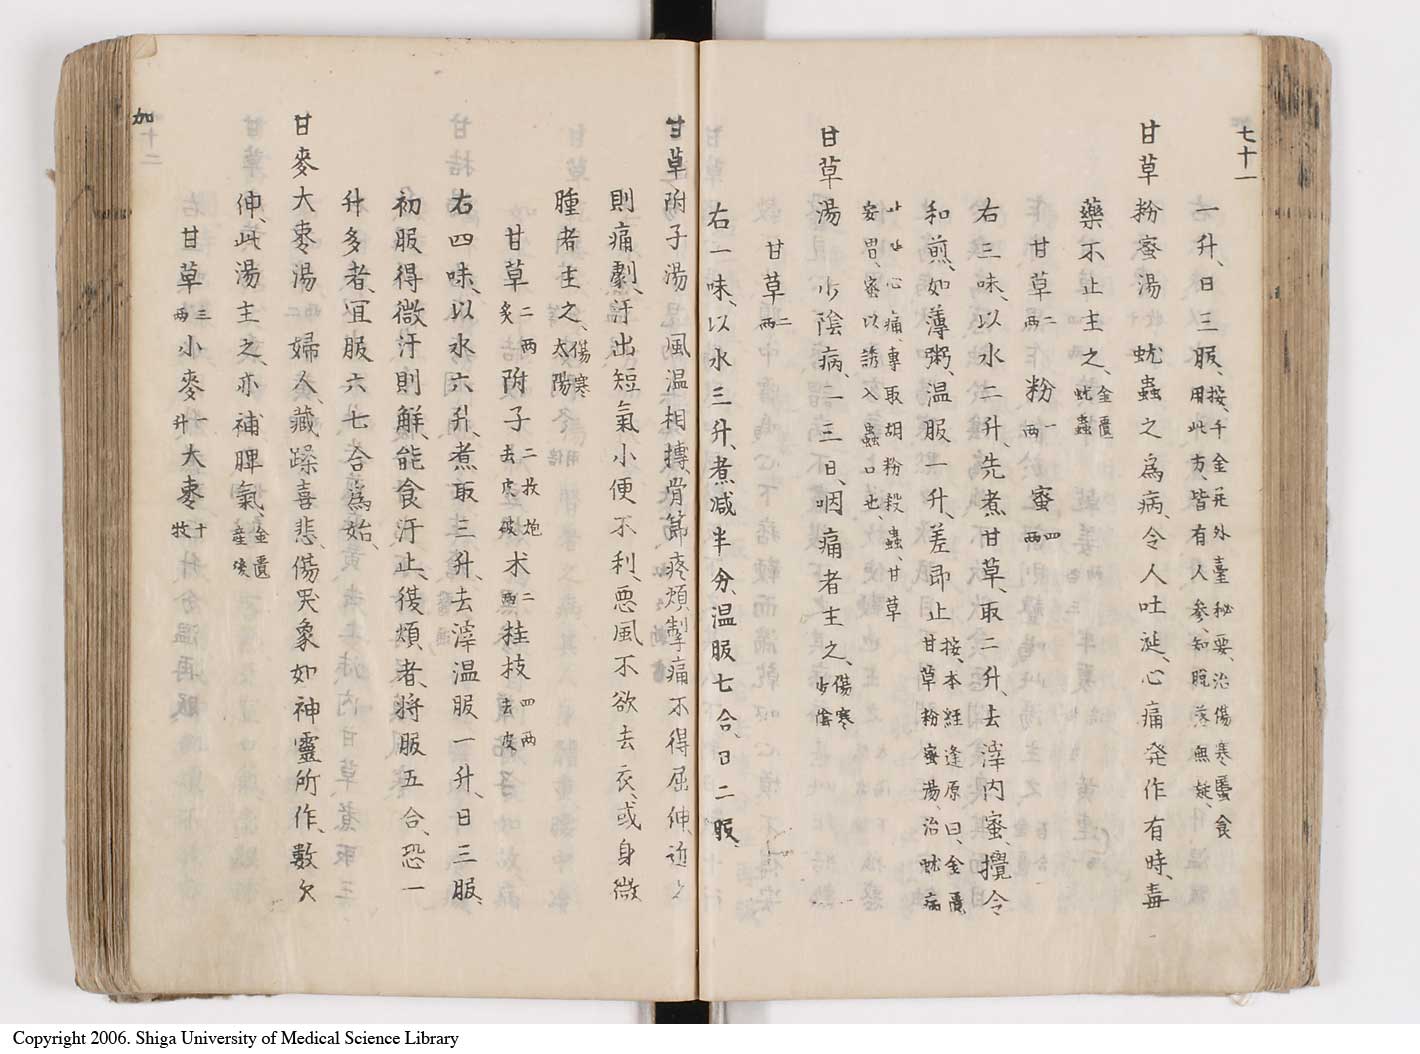 七十一
一升、日三服、按、千金、外臺秘要、治傷寒䘌食
用此方、皆有人參、知脱落無疑、
甘草粉蜜湯 蚘蟲之爲病、令人吐涎、心痛発作有時、毒
藥不止主之、金匱
蚘蟲
甘草二兩 粉一兩 蜜四兩
右三味、以水二升、先煮甘草、取二升、去滓、内蜜、攪令
和、煎如薄粥、温服一升、差即止 按、本経逢原曰、金匱
甘草粉蜜湯、治蚘病
吐心痛、專取胡粉殺蟲、甘草
安胃、蜜以誘入蟲口也、
甘草湯 少陰病、二三日、咽痛者主之、傷寒
少陰
甘草二兩
右一味、以水三升、煮減半分、温服七合、日二服、
甘草附子湯 風温相摶、骨節疼煩、掣痛不得屈伸、近之
則痛劇、汗出短氣、小便不利、悪風不欲去衣、或身微
腫者主之、傷寒
太陽
甘草二兩炙 附子二枚炮去皮破 朮二兩 桂枝四兩去皮
右四味、以水六升、煮取三升、去滓温服一升、日三服、
初服得微汗則解、能食汗止、復煩者、將服五合、恐一
升多者、宜服六七合爲始、
甘麥大棗湯 婦人、藏躁喜悲、傷哭象如神靈所作、數欠
伸、此湯主之、亦補脾氣、金匱
産後
甘草三兩 小麥升 大棗十枚
加
十二
Copyright 2006. Shiga University of Medical Science Library